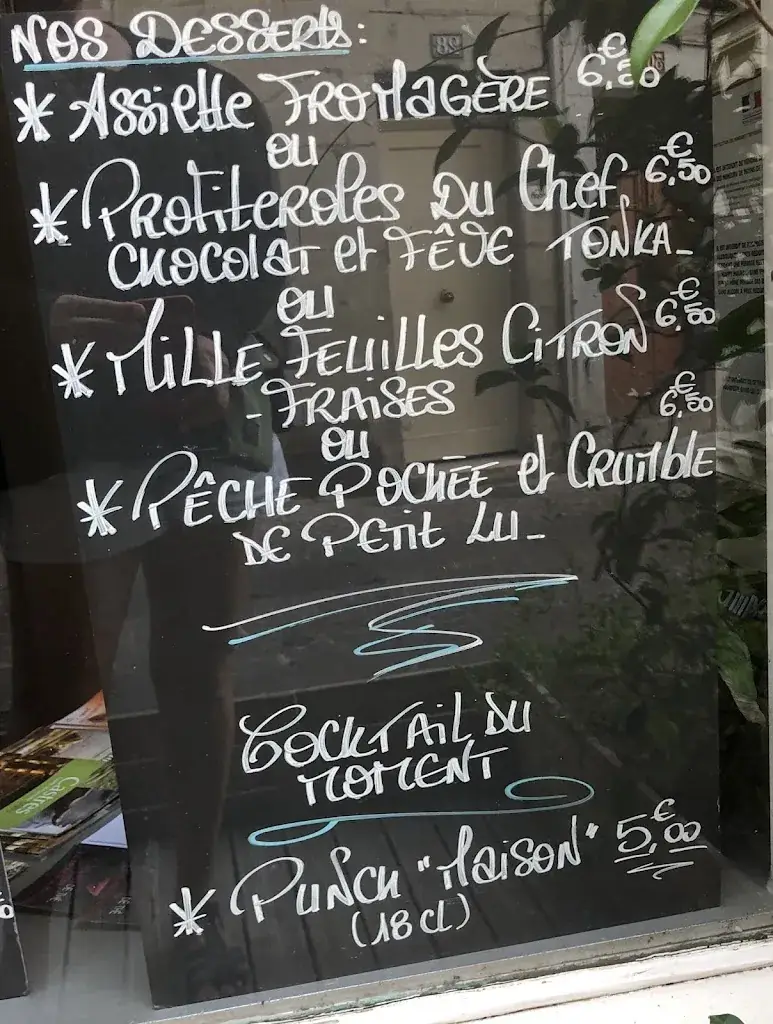 NOS DESSERTS :
* ASSIETTE FROMAGÈRE 6,50€
OU
* PROFITEROLES DU CHEF, 6,50€
CHOCOLAT et FÊVE TONKA_
OU
* MILLE FEUILLES CITRON 6,50€
- FRAISES
OU 6,50€
* PÊCHE POCHÉE et CRUMBLE
DE PETIT LU_
COCKTAIL DU
MOMENT
* PUNCH "MAISON" 5,00€
(18cl)